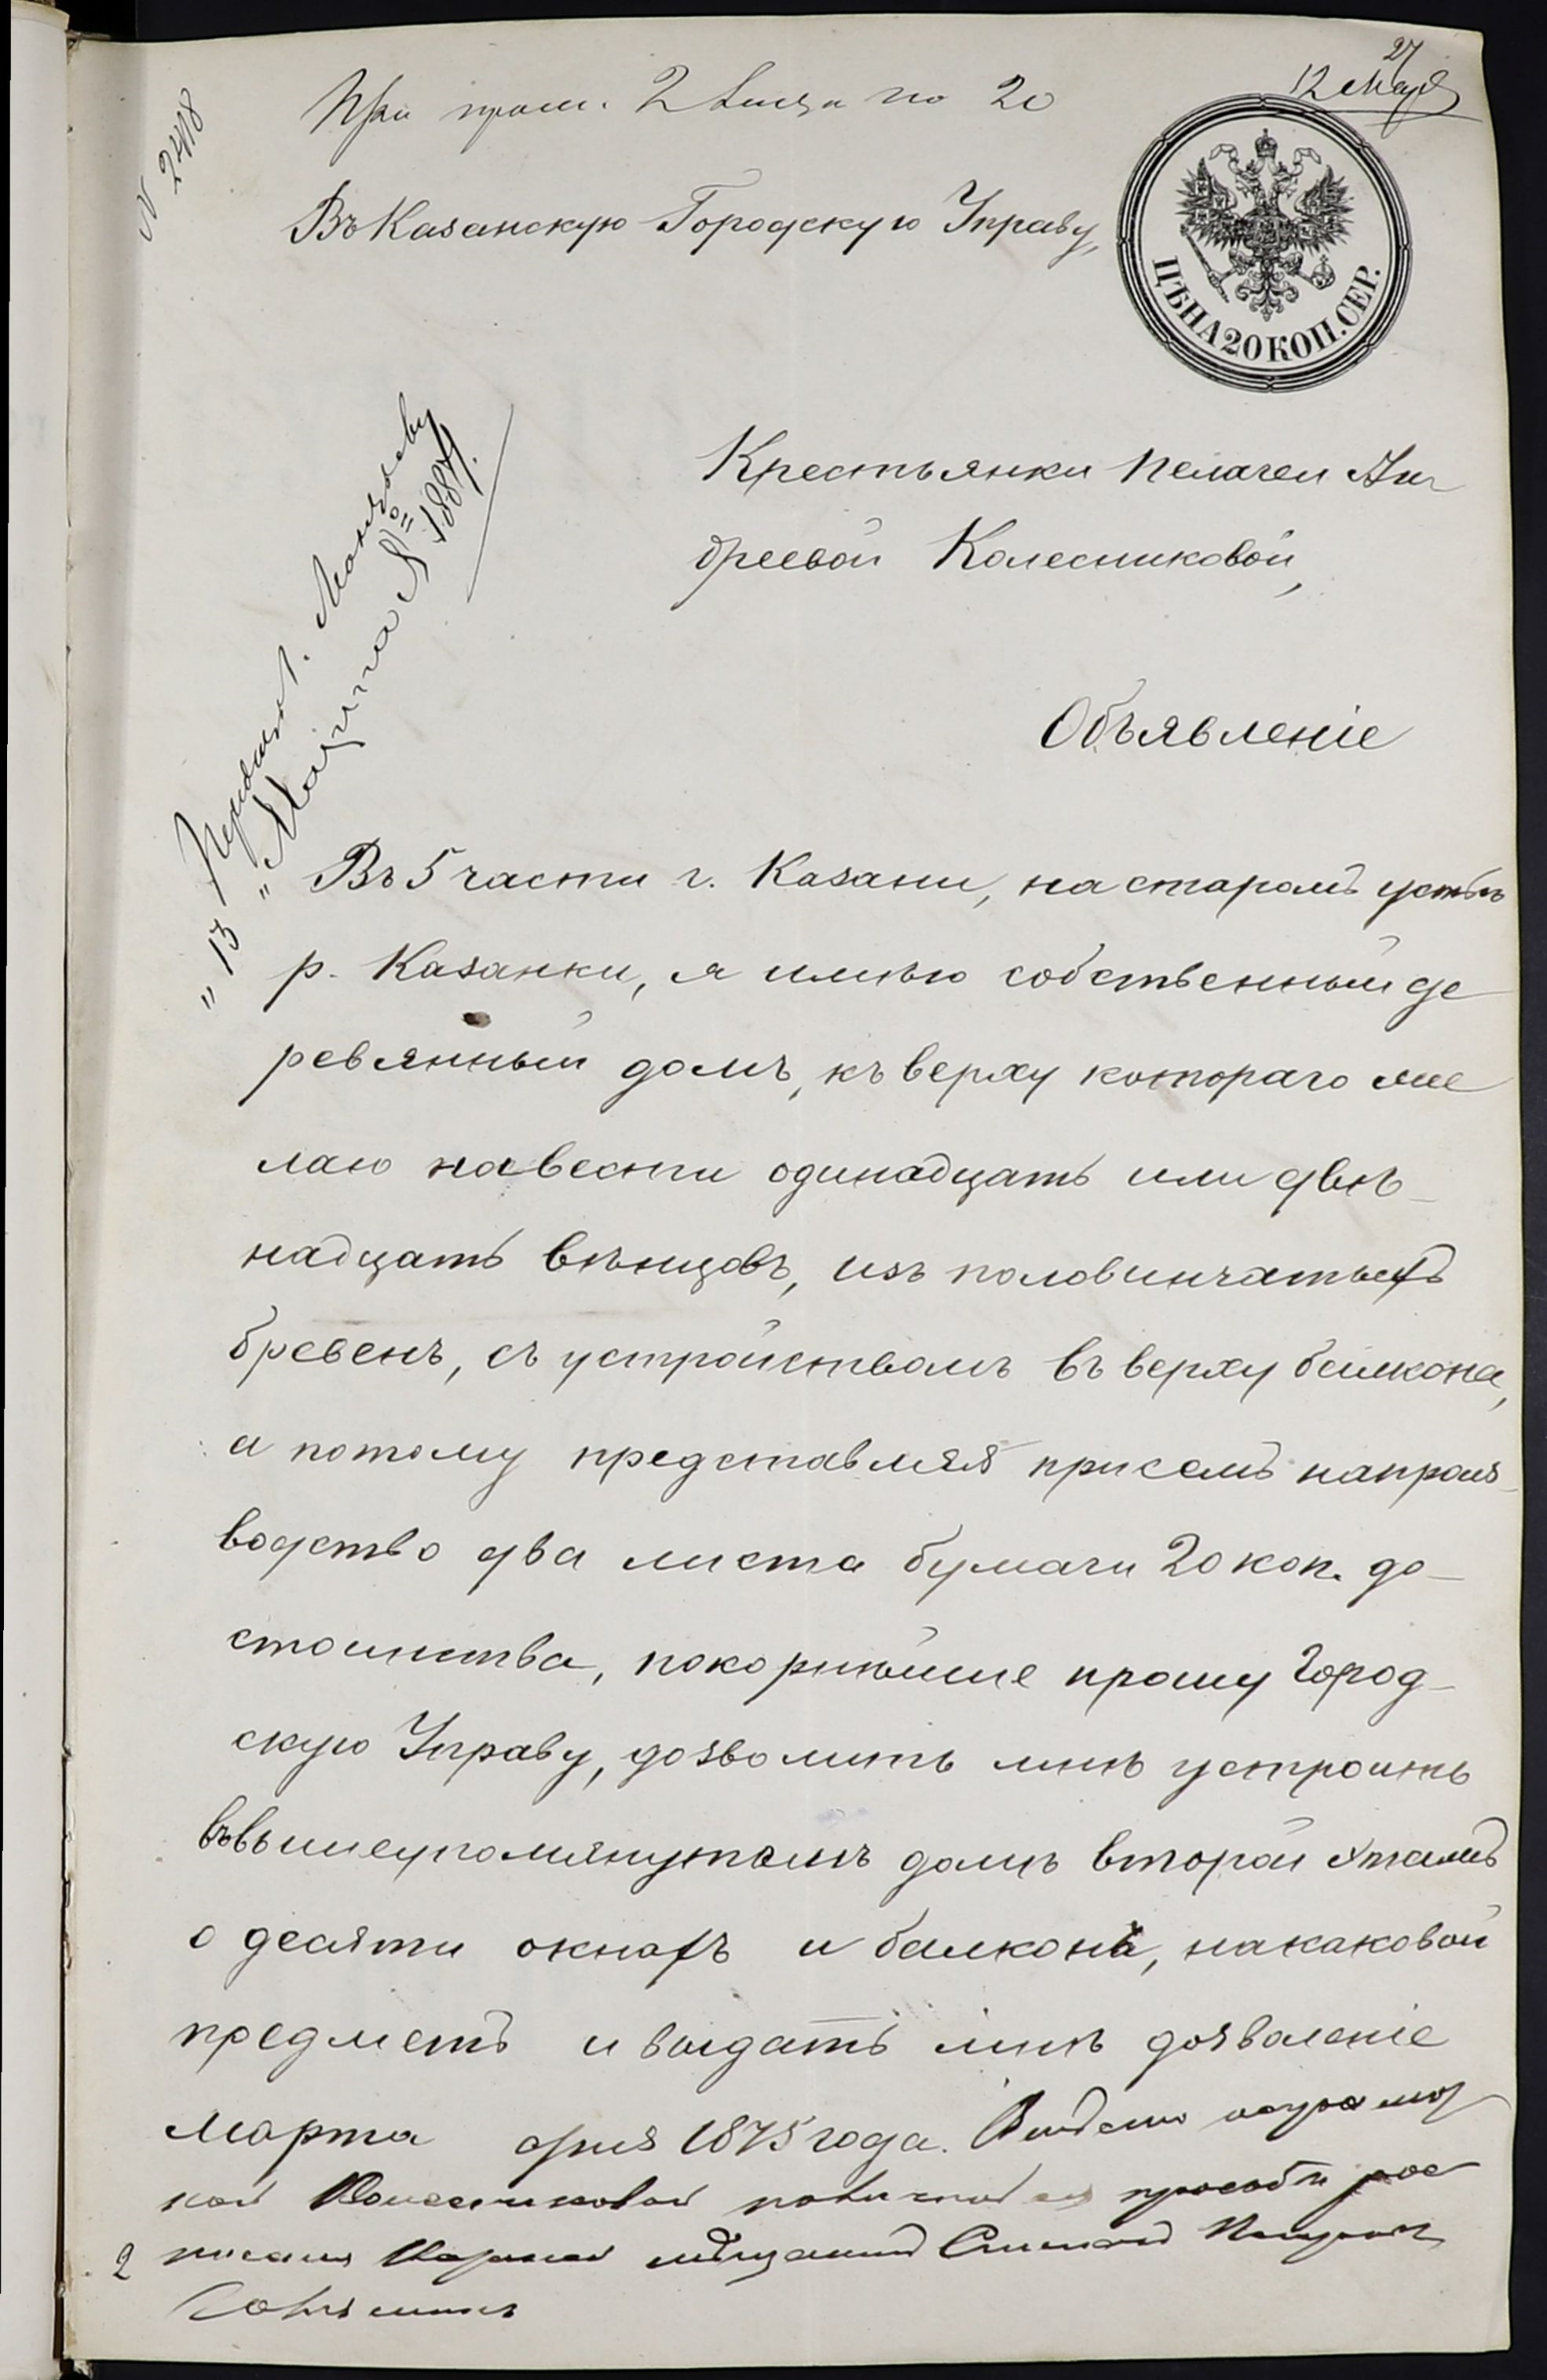 27
12 Мая
№ 2418
При прош. 2 листа по 20
Въ Казанскую Городскую Управу,
ЦѢНА 20 КОП. СЕР.
Крестьянки Пелагеи Ан
дреевой Колесниковой,
Объявленіе
"13 " Марта № 1887.
Въ 5 части г. Казани, на старомъ устьѣ
р. Казанки, я имѣю собственный де
ревянный домъ, къ верху котораго же
лаю навести одинадцать или двѣ-
надцать вѣнцовъ, изъ половинчатыхъ
бревенъ, съ устройствомъ въ верху балкона,
а потому представляя присемъ напроиз-
водство два листа бумаги 20 коп. до-
стоинства, покорнѣйше прошу Город-
скую Управу, дозволить мнѣ устроить
въ вышеупомянутомъ домѣ второй этажъ
о десяти окнахъ и балконѣ, накаковой
предметъ и выдать мнѣ дозволеніе
Марта дня 1875 года.
Колесниковой просьбѣ рос
2